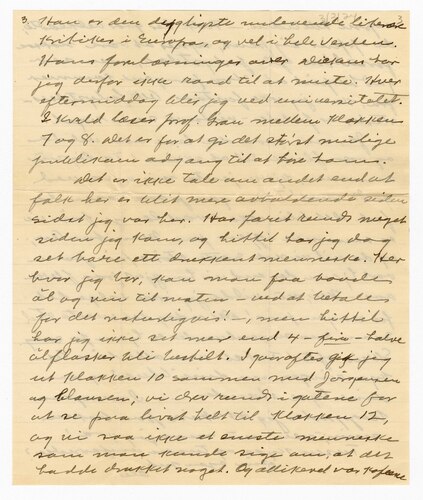 3.
Han er den dygtigste nulevende literære
Kritiker i Europa, og vel i hele Verden.
Hans forelæsninger over Dickens har
jeg derfor ikke raad til at miste. Hver
eftermiddag blir jeg ved universitetet.
I kveld læser prof. Gran mellem klokken
7 og 8. Det er for at gi det størst mulige
publikum adgang til at høre ham.
Det er ikke tale om andet end at
folk her er blit mere avholdende siden
sidst jeg var her. Har faret rundt meget
siden jeg kom, og hittil har jeg dog
set bare ett drukkent menneske. Her
hvor jeg bor, kan man faa baade
øl og vin til maten – ved at betale
for det naturligvis! –, men hittil
har jeg ikke set mer end 4 – fire – halve
ølflasker bli bestilt. I gaaraftes gik jeg
ut klokken 10 sammen med Jörgensen
og Clausen; vi drev rundt i gatene for
at se paa livet helt til klokken 12,
og vi saa ikke et eneste menneske
som man kunde sige om, at det
hadde drukket noget. Og allikevel var